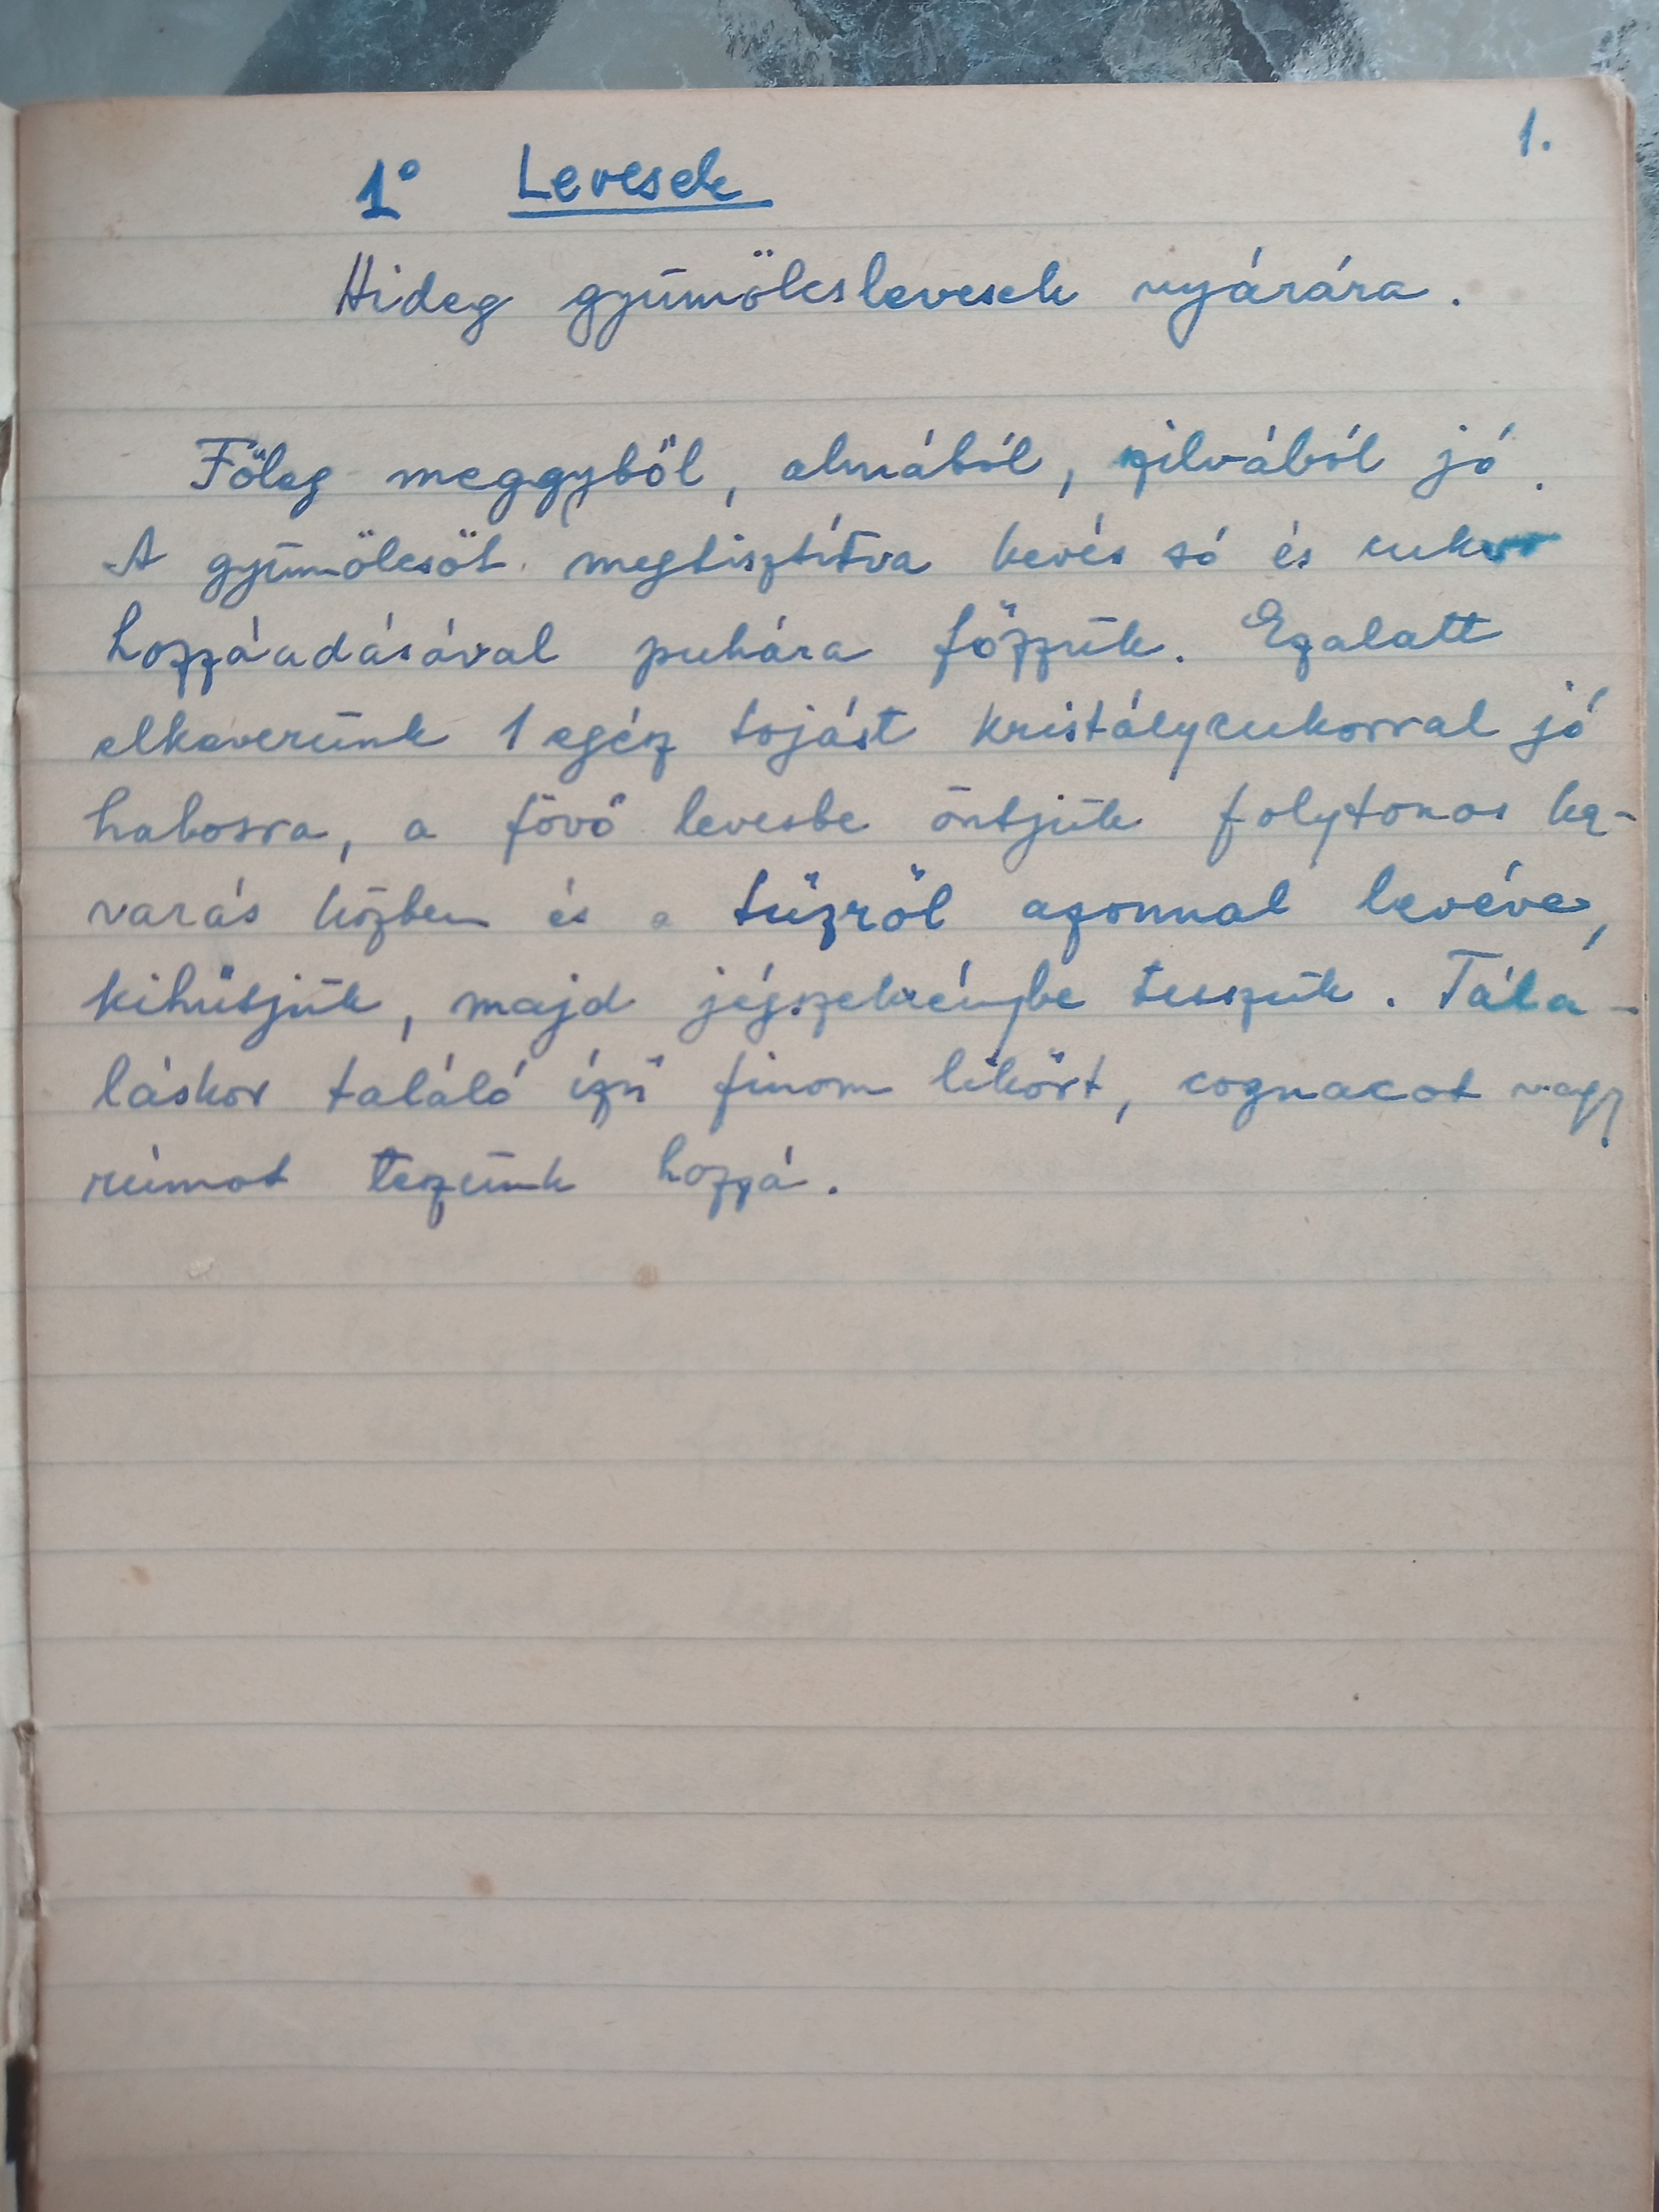 1.
1° Levesek
Hideg gyümölcslevesek nyárára.
Főleg meggyből, almából, szilvából jó.
A gyümölcsöt megtisztítva kevés só és cukor
hozzáadásával puhára főzzük. Ezalatt
elkeverünk 1 egész tojást kristálycukorral jó
habosra, a fövő levesbe öntjük folytonos ka-
varás közben és a tűzről azonnal levéve,
kihűtjük, majd jégszekrénybe tesszük. Tála-
láskor találó ízű finom likört, cognacot vagy
rumot teszünk hozzá.